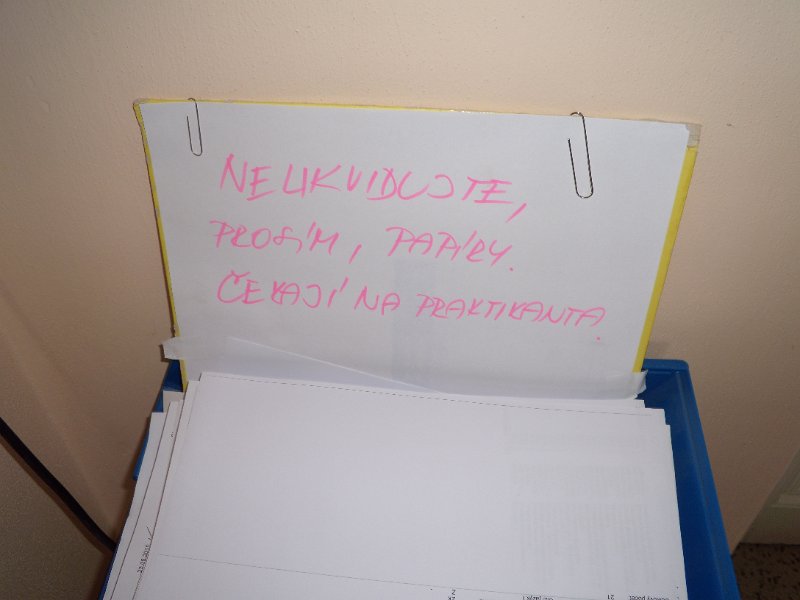 NELIKVIDUJTE,
PROSÍM, PAPÍRY.
ČEKAJÍ NA PRAKTIKANTA.